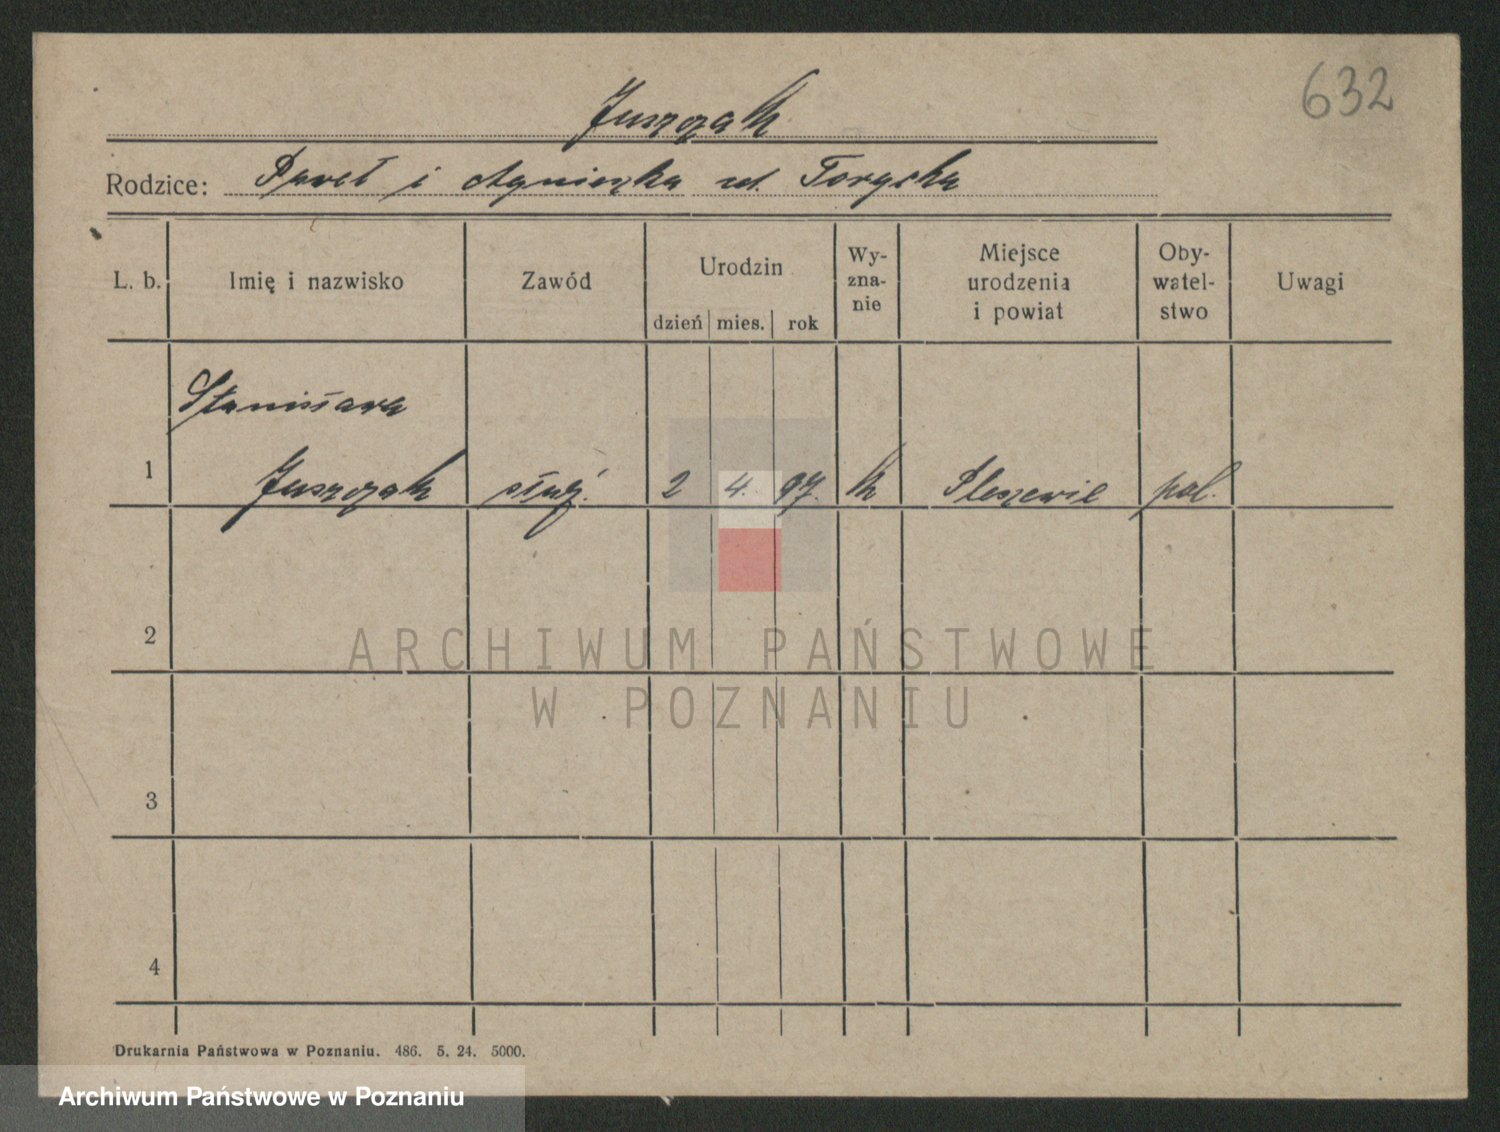 632
Juszczak
Rodzice: Paweł i Agnieszka zd.
L. b. Imię i nazwisko Zawód Urodzin dzień mies. rok Wy-zna-nie Miejsce urodzenia i powiat Oby-watel-stwo Uwagi
Stanisława
1 Juszczak służ. 2 4. 97. k Pleszewie pol.
2
3
4
ARCHIWUM PAŃSTWOWE
W POZNANIU
Drukarnia Państwowa w Poznaniu. 486. 5. 24. 5000.
Archiwum Państwowe w Poznaniu